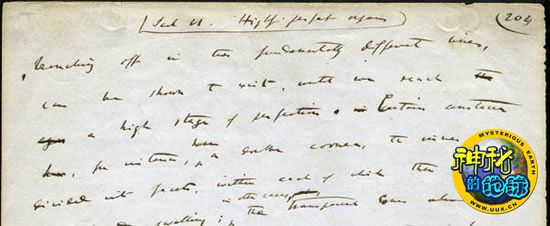 Highly perfect organs
204
branching off in two fundamentally different lines,
can be shown to exist, until we reach the
a high stage of perfection. Certain crustacean
for instance, a double cornea, the inner
divided into facets, within each of which there
swelling; the transparent cones
MYSTERIOUS EARTH
神秘
的地球
WWW.UUX.CN